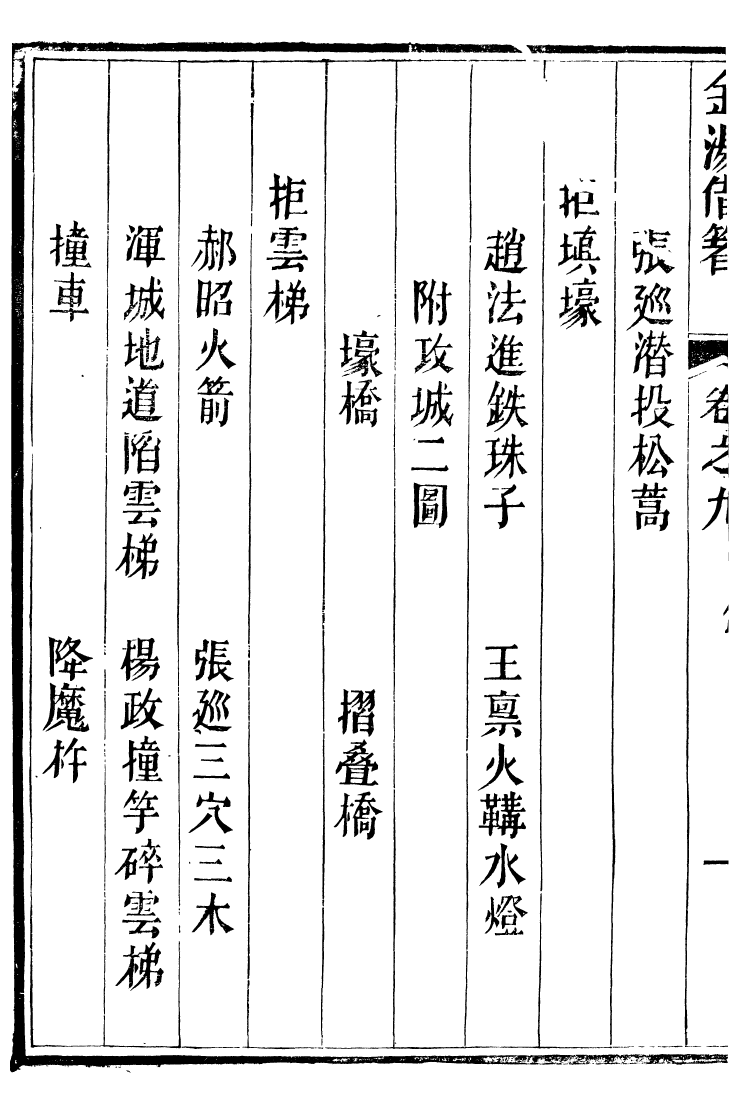 金湯借箸 卷之九 一
張廵潛投松蒿
拒填壕
趙法進鉄珠子 王禀火鞲水燈
附攻城二圖
壕橋 摺叠橋
拒雲梯
郝昭火箭 張廵三穴三木
渾城地道陷雲梯 楊政撞竿碎雲梯
撞車 降魔杵